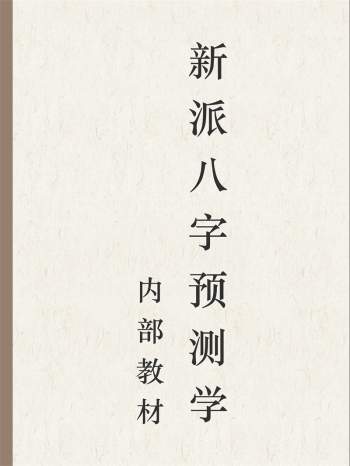 新派八字预测学
内部教材